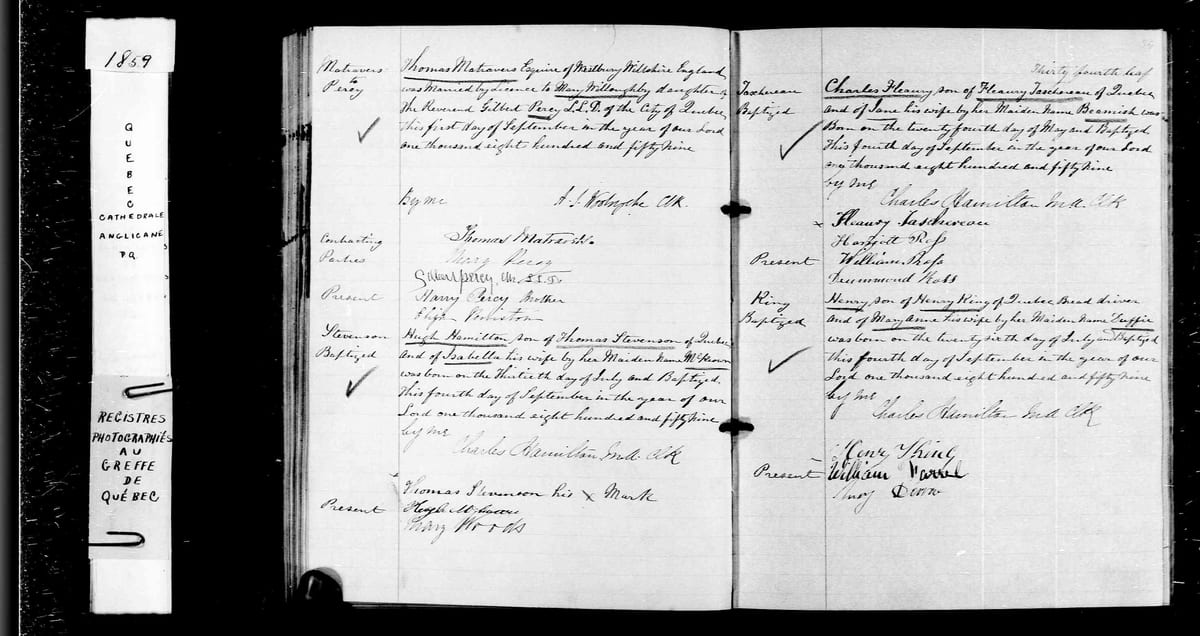 1859
QUEBEC
CATHEDRALE
ANGLICANE
P.Q.
REGISTRES
PHOTOGRAPHIÉS
AU
GREFFE
DE
QUÉBEC
Matravers
to
Percy
Thomas Matravers Esquire of Westbury Wiltshire England
was Married by Licence to Mary Willoughby daughter of
the Reverend Gilbert Percy L.L.D. of the City of Quebec
this first day of September in the year of our Lord
one thousand eight hundred and fifty nine
By me
Clk.
Contracting
Parties
Thomas Matravers
Mary Percy
Gilbert Percy
Present
Harry Percy Brother
Stevenson
Baptized
Hugh Hamilton son of Thomas Stevenson of Quebec
and of Isabella his wife by her Maiden Name McKeown
was born on the Thirtieth day of July and Baptized
This fourth day of September in the year of our
Lord one thousand eight hundred and fifty Nine
by me
Charles Hamilton M.A. Clk
Thomas Stevenson his x Mark
Present
Mary Woods
Thirty fourth leaf
Taschereau
Baptized
Charles Fleaury son of Fleaury Taschereau of Quebec
and of Jane his wife by her Maiden Name Beamish was
Born on the twenty fourth day of May and Baptized
This fourth day of September in the year of our Lord
one thousand eight hundred and fifty Nine
by me
Charles Hamilton M.A. Clk
x Fleaury Taschereau
Harriott Ross
Present
William Ross
Drummond Ross
King
Baptized
Henry son of Henry King of Quebec Bread driver
and of Mary Anne his wife by her Maiden Name Duffie
was born on the twenty sixth day of July and Baptized
this fourth day of September in the year of our
Lord one thousand eight hundred and fifty Nine
by me
Charles Hamilton M.A. Clk
Henry King
Present
William